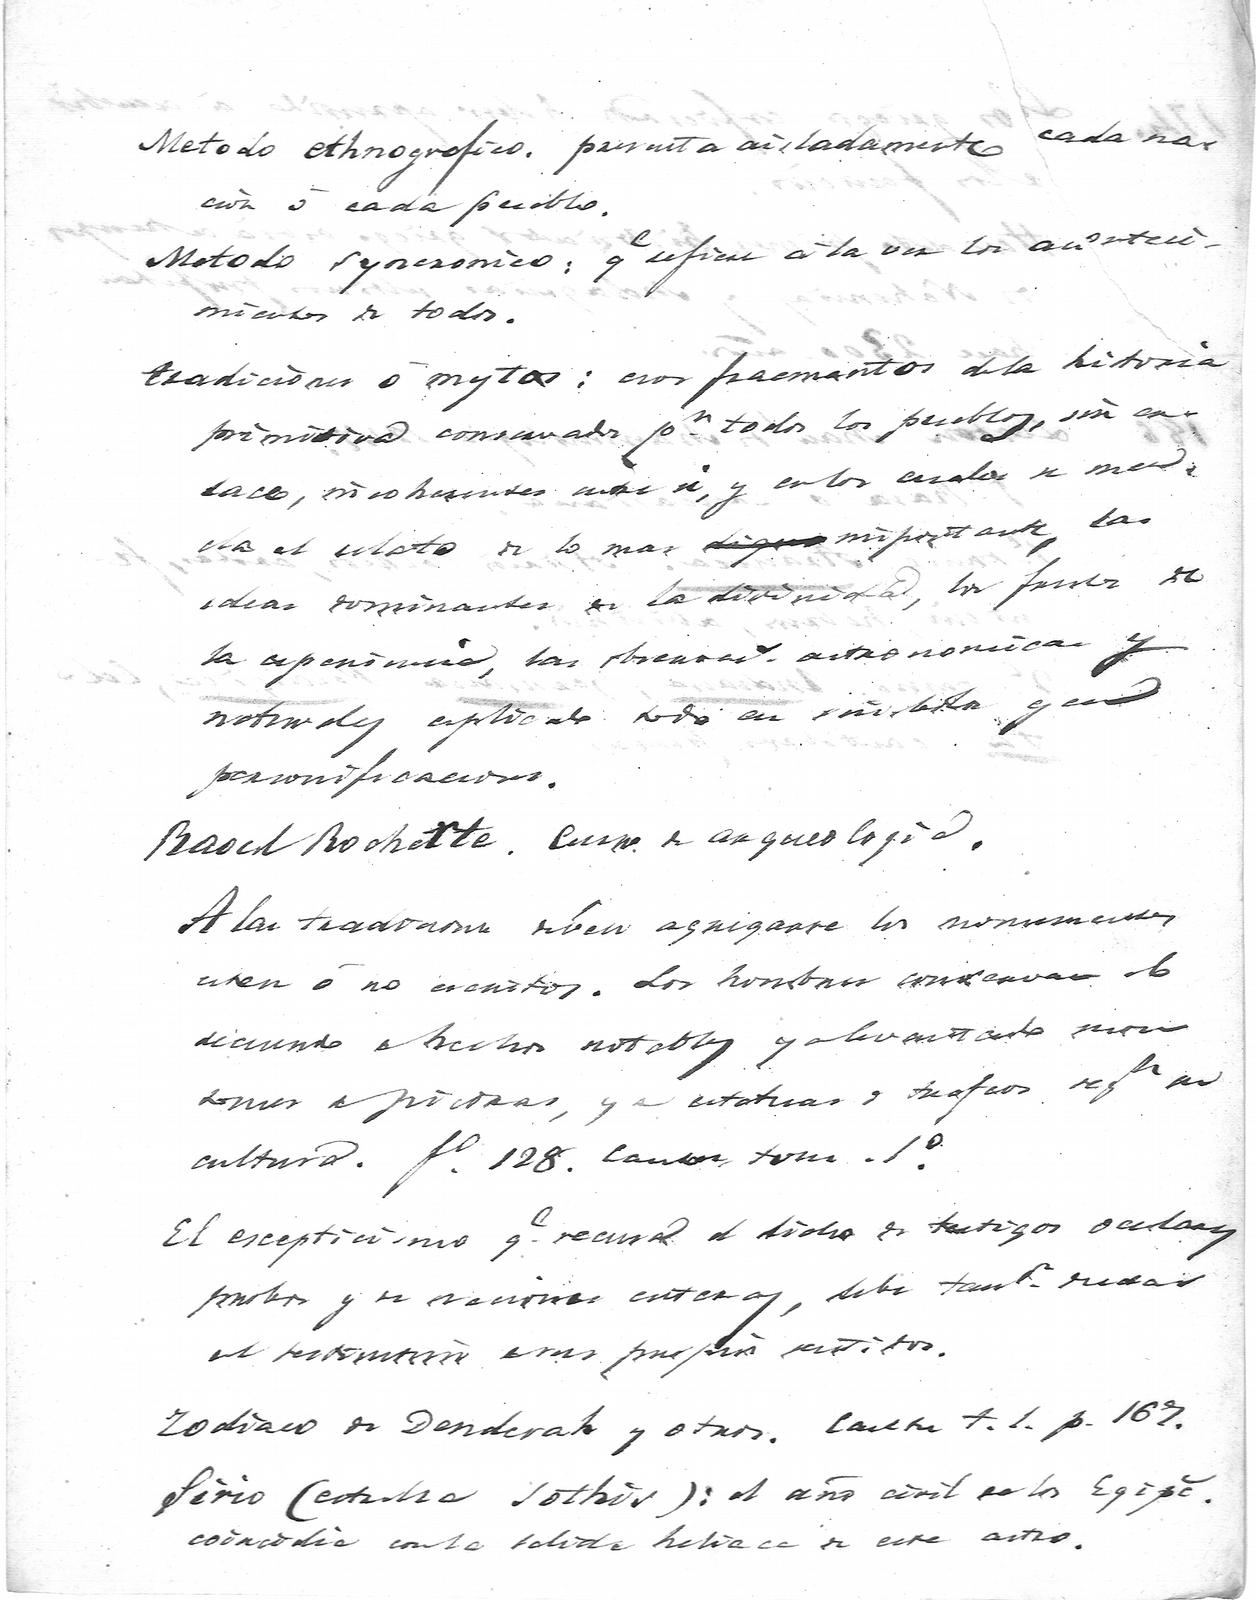 Metodo ethnografico. presenta aisladamente cada na-
cion ó cada pueblo.
Metodo syncronico: q.e refiere á la vez los acontesi-
mientos de todos.
tradiciones ó mytos: esos fracmentos de la historia
primitiva conservados p.r todos los pueblos, sin en-
lace, incoherentes entre si, y en los cuales se mez-
cla el relato de lo mas importante, las
ideas dominantes de la divinidad, los frutos de
la esperiencia, las observac.s astronomicas y
naturales esplicado todo en simbolos y en
personificaciones.
Raoul Rochette. Curso de arqueologia.
A las tradiciones deben agregarse los monumentos
esten ó no escritos. Los hombres conservan el
de hechos notables ya levantando mon
tones de piedras, ya estatuas o trofeos seg.n su
cultura. f.o 128. Cantu tomo 1.o
El escepticismo q.e recusa el dicho de testigos oculares
probos y de naciones enteras, debe tamb.n dudar
el testimonio de sus propios sentidos.
Zodiaco de Denderah y otros. Cantu t. 1. p. 167.
Sirio (estrella Sothis): el año civil de los Egipc.
coincidia con la salida heliaca de este astro.